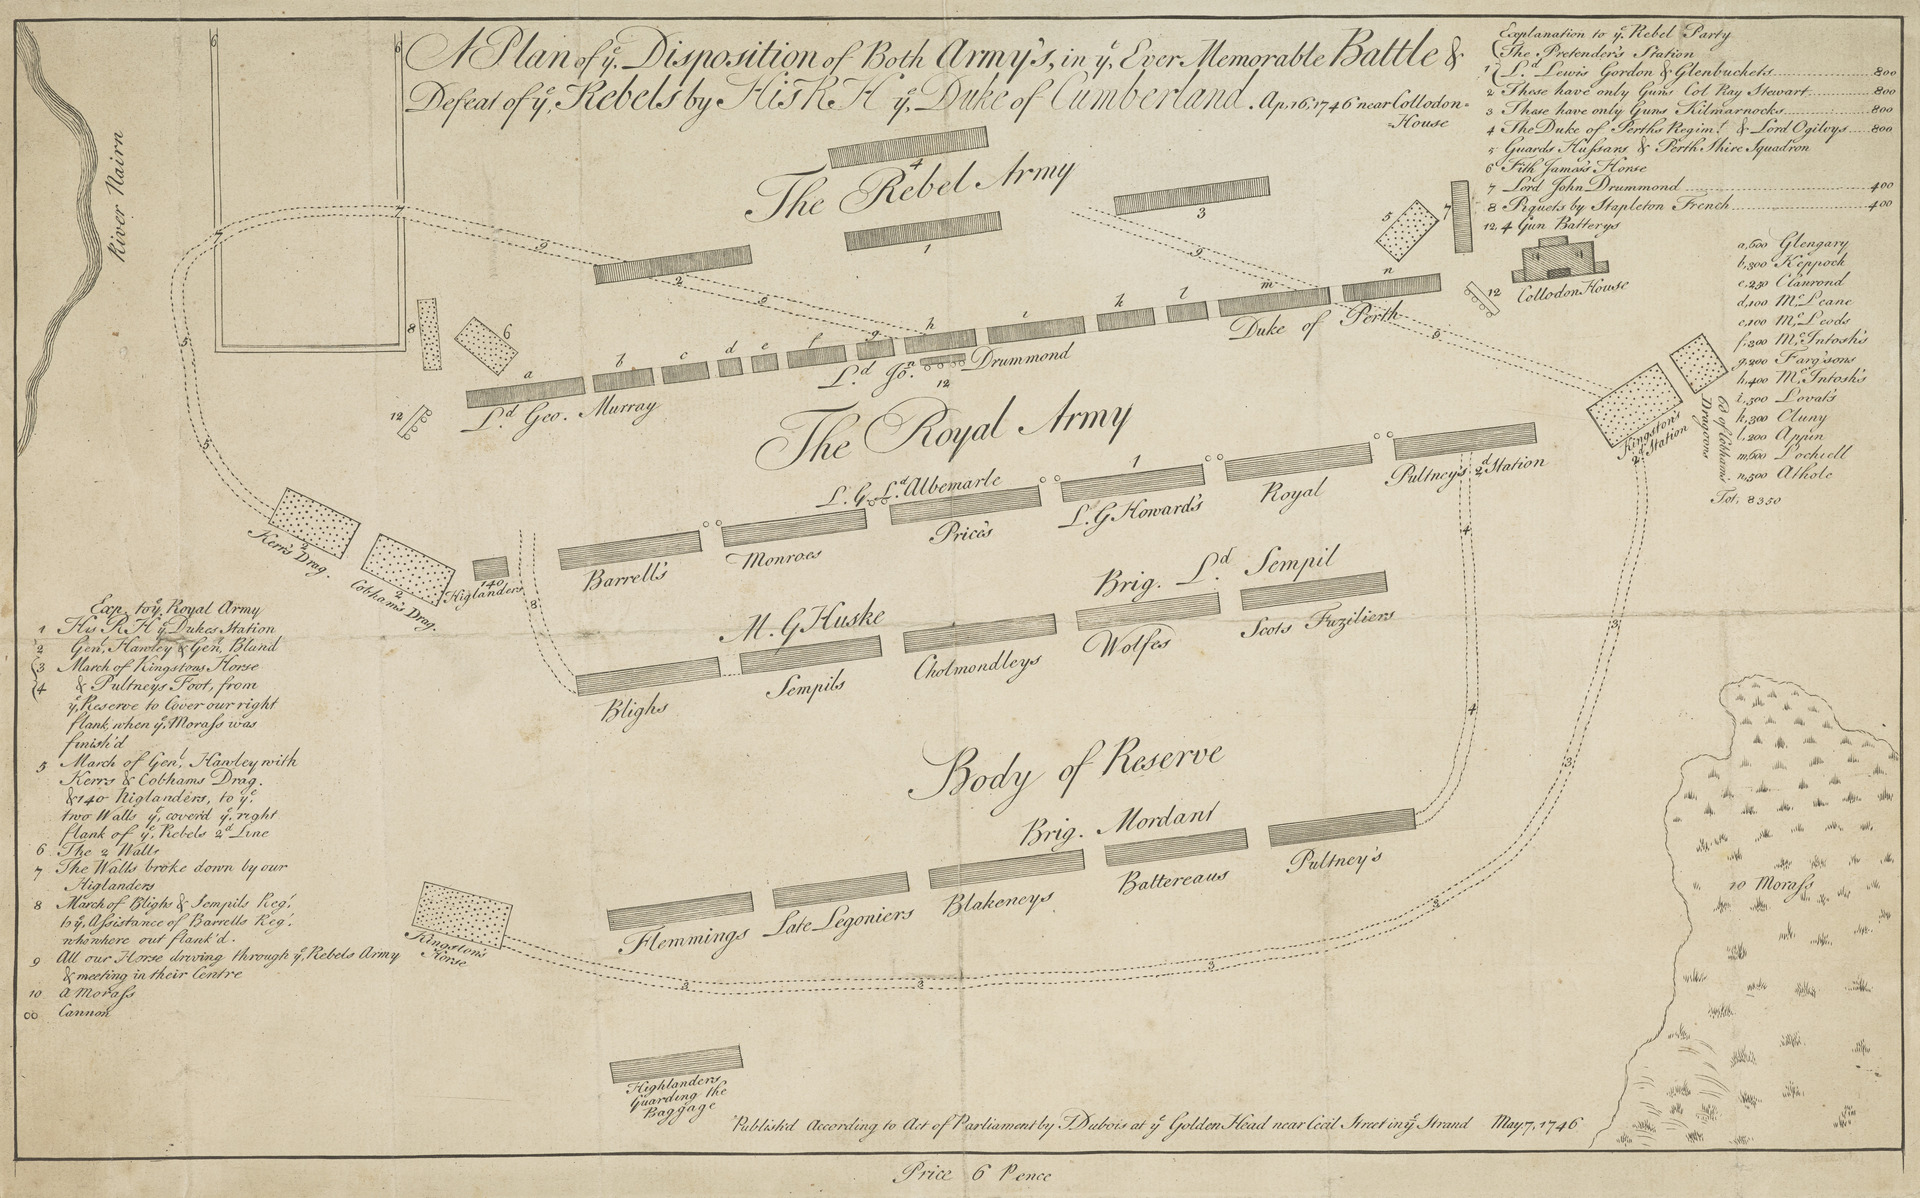 A Plan of yᵉ Disposition of Both Army's, in yᵉ Ever Memorable Battle &
Defeat of yᵉ Rebels by His R H yᵉ Duke of Cumberland. Ap. 16, 1746 near Collodon=
=House
Explanation to yᵉ Rebel Party
The Pretender's Station
1 Lᵈ Lewis Gordon & Glenbuckets 800
2 These have only Guns Col Ray Stewart 800
3 These have only Guns Kilmarnocks 800
4 The Duke of Perths Regimᵗ & Lord Ogilvys 800
5 Guards Hussars & Perth Shire Squadron
6 Fith James's Horse
7 Lord John Drummond 400
8 Piquets by Stapleton French 400
12, 4 Gun Batterys
a, 600 Glengary
b, 300 Keppoch
c, 250 Clanrond
d, 100 Mᶜ Leane
e, 100 Mᶜ Leods
f, 300 Mᶜ Intosh's
g, 200 Farg'sons
h, 400 Mᶜ Intosh's
i, 500 Lovat's
k, 300 Cluny
l, 200 Appin
m, 600 Lochiell
n, 500 Athole
Tot, 8350
River Nairn
6
6
4
The Rebel Army
3
1
2
5
7
12
Collodon House
7
7
9
9
9
6
6
5
5
8
6
12
a
b
c
d
e
f
g
h
i
k
l
m
n
Lᵈ Geo. Murray
Lᵈ Joⁿ Drummond
12
Duke of Perth
The Royal Army
Kingston's
2ᵈ Station
60 of Cobhams
Dragoons
L. G. Lᵈ Albemarle
1
Barrell's
Monroes
Price's
L. G Howard's
Royal
Pultney's 2ᵈ Station
2
Kerr's Drag.
2
Cobham's Drag.
140
Higlanders
8
M. G Huske
Brig. Lᵈ Sempil
Blighs
Sempils
Cholmondleys
Wolfes
Scots Fuziliers
4
4
3
3
3
3
3
3
Body of Reserve
Brig. Mordant
Flemmings
Late Legoniers
Blakeneys
Battereaus
Pultney's
Kingston's
Horse
10 Morass
Exp. to yᵉ Royal Army
1 His R H yᵉ Dukes Station
2 Gen, Hawley & Gen, Bland
3 March of Kingstons Horse
4 & Pultneys Foot, from
yᵉ Reserve to Cover our right
flank, when yᵉ Morass was
finish'd
5 March of Genˡ Hawley with
Kerrs & Cobhams Drag.
& 140 Higlanders, to yᵉ
two Walls yᵗ cover'd yᵉ right
flank of yᵉ Rebels 2ᵈ Line
6 The 2 Walls
7 The Walls broke down by our
Higlanders
8 March of Blighs & Sempils Regᵗ
to yᵉ Assistance of Barrells Regᵗ
who where out flank'd.
9 All our Horse driving through yᵉ Rebels Army
& meeting in their Centre
10 a Morass
oo Cannon
Highlanders
Guarding the
Baggage
Publish'd According to Act of Parliament by F. Dubois at yᵉ Golden Head near Cecil Street in yᵉ Strand May 7, 1746
Price 6 Pence